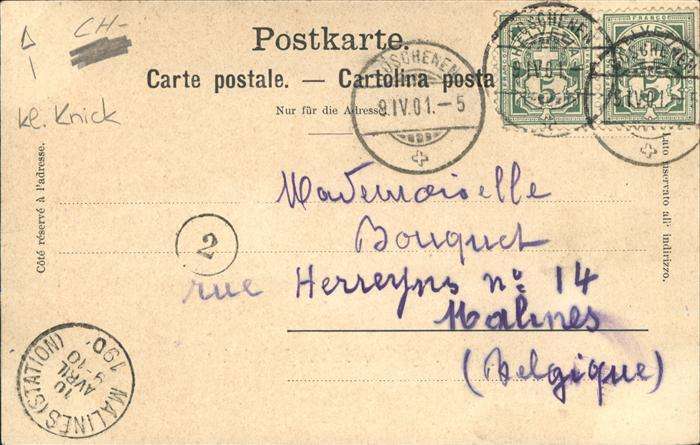 CH-
kl. Knick
Postkarte.
Carte postale. — Cartolina posta
Nur für die Adresse
Côté réservé à l'adresse.
Lato riservato all' indirizzo.
GÖSCHENEN
9.IV.01.-5
FRANCO
5
FRANCO
5
2
Mademoiselle
Bouquet
rue Herreyns nº 14
Malines
(Belgique)
MALINES (STATION)
10
AVRIL
9-10
190